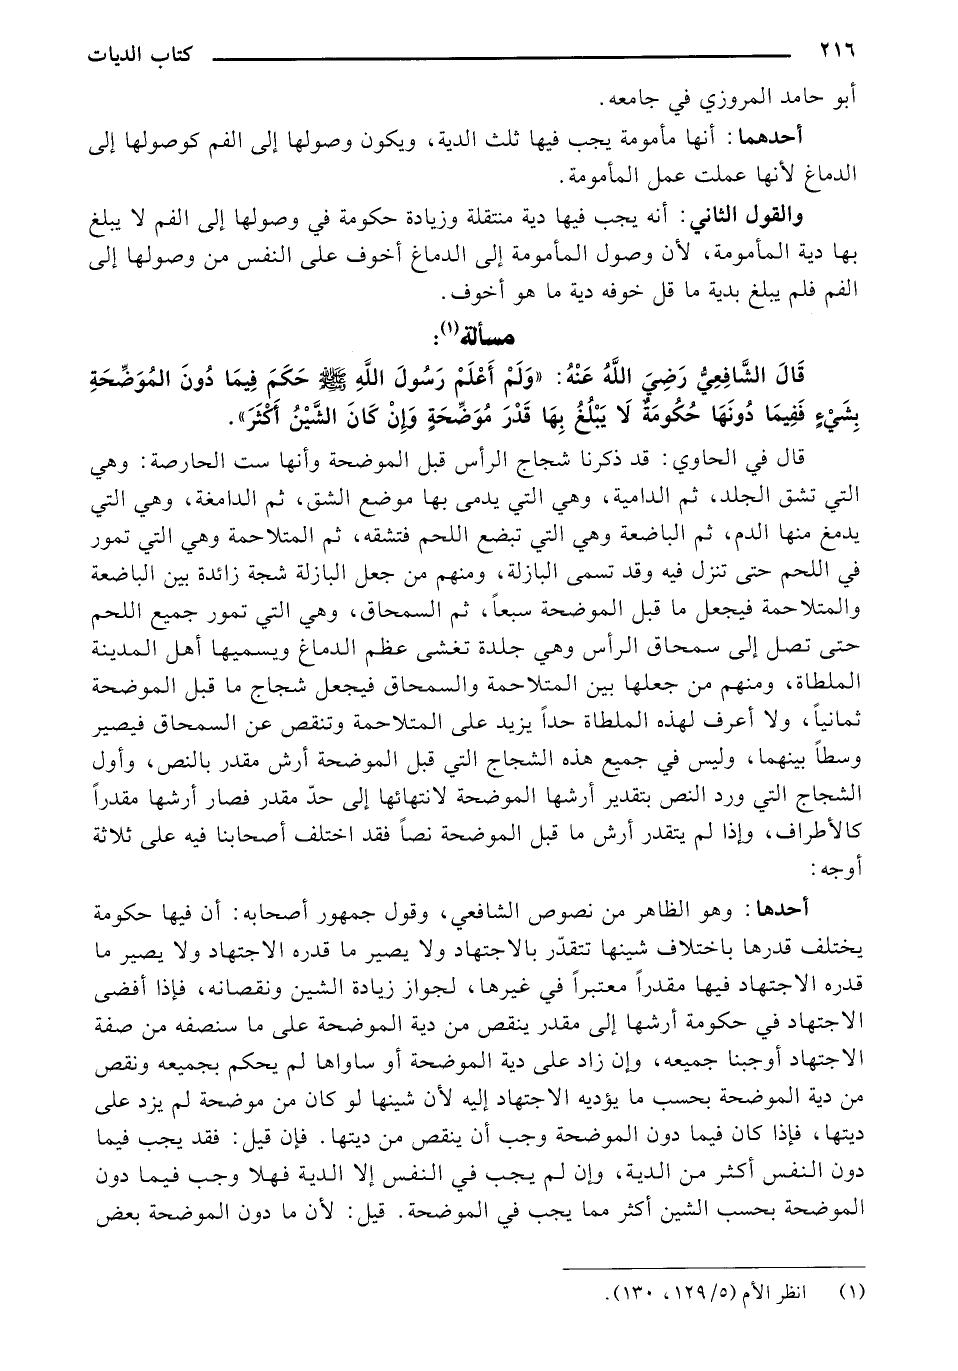 ٢١٦ كتاب الديات
أبو حامد المروزي في جامعه.
أحدهما: أنها مأمومة يجب فيها ثلث الدية، ويكون وصولها إلى الفم كوصولها إلى
الدماغ لأنها عملت عمل المأمومة.
والقول الثاني: أنه يجب فيها دية منتقلة وزيادة حكومة في وصولها إلى الفم لا يبلغ
بها دية المأمومة، لأن وصول المأمومة إلى الدماغ أخوف على النفس من وصولها إلى
الفم فلم يبلغ بدية ما قل خوفه دية ما هو أخوف.
مسألة(١):
قَالَ الشَّافِعِيُّ رَضِيَ اللَّهُ عَنْهُ: «وَلَمْ أَعْلَمْ رَسُولَ اللَّهِ ﷺ حَكَمَ فِيمَا دُونَ المُوَضِّحَةِ
بِشَيْءٍ فَفِيمَا دُونَهَا حُكُومَةٌ لَا يَبْلُغُ بِهَا قَدْرَ مُوَضِّحَةٍ وَإِنْ كَانَ الشَّيْنُ أَكْثَرَ».
قال في الحاوي: قد ذكرنا شجاج الرأس قبل الموضحة وأنها ست الحارصة: وهي
التي تشق الجلد، ثم الدامية، وهي التي يدمى بها موضع الشق، ثم الدامغة، وهي التي
يدمغ منها الدم، ثم الباضعة وهي التي تبضع اللحم فتشقه، ثم المتلاحمة وهي التي تمور
في اللحم حتى تنزل فيه وقد تسمى البازلة، ومنهم من جعل البازلة شجة زائدة بين الباضعة
والمتلاحمة فيجعل ما قبل الموضحة سبعاً، ثم السمحاق، وهي التي تمور جميع اللحم
حتى تصل إلى سمحاق الرأس وهي جلدة تغشى عظم الدماغ ويسميها أهل المدينة
الملطاة، ومنهم من جعلها بين المتلاحمة والسمحاق فيجعل شجاج ما قبل الموضحة
ثمانياً، ولا أعرف لهذه الملطاة حداً يزيد على المتلاحمة وتنقص عن السمحاق فيصير
وسطاً بينهما، وليس في جميع هذه الشجاج التي قبل الموضحة أرش مقدر بالنص، وأول
الشجاج التي ورد النص بتقدير أرشها الموضحة لانتهائها إلى حدّ مقدر فصار أرشها مقدراً
كالأطراف، وإذا لم يتقدر أرش ما قبل الموضحة نصاً فقد اختلف أصحابنا فيه على ثلاثة
أوجه:
أحدها: وهو الظاهر من نصوص الشافعي، وقول جمهور أصحابه: أن فيها حكومة
يختلف قدرها باختلاف شينها تتقدّر بالاجتهاد ولا يصير ما قدره الاجتهاد ولا يصير ما
قدره الاجتهاد فيها مقدراً معتبراً في غيرها، لجواز زيادة الشين ونقصانه، فإذا أفضى
الاجتهاد في حكومة أرشها إلى مقدر ينقص من دية الموضحة على ما سنصفه من صفة
الاجتهاد أوجبنا جميعه، وإن زاد على دية الموضحة أو ساواها لم يحكم بجميعه ونقص
من دية الموضحة بحسب ما يؤديه الاجتهاد إليه لأن شينها لو كان من موضحة لم يزد على
ديتها، فإذا كان فيما دون الموضحة وجب أن ينقص من ديتها. فإن قيل: فقد يجب فيما
دون النفس أكثر من الدية، وإن لم يجب في النفس إلا الدية فهلا وجب فيما دون
الموضحة بحسب الشين أكثر مما يجب في الموضحة. قيل: لأن ما دون الموضحة بعض
(١) انظر الأم (٥/ ١٢٩، ١٣٠).